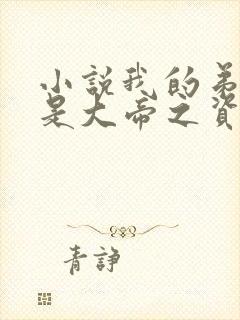 小説我的弟
是大帝之資
青諍